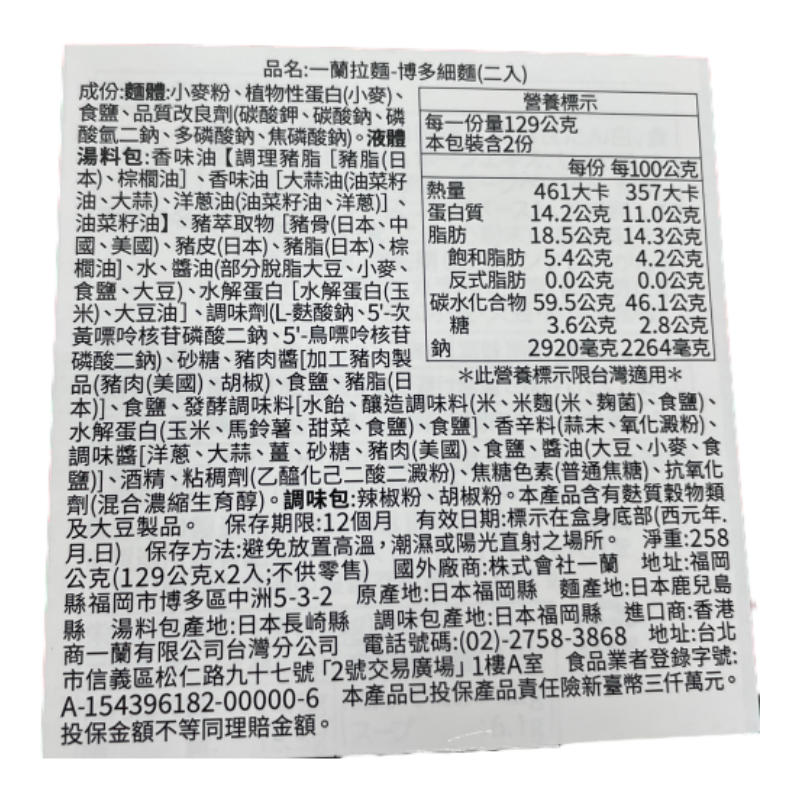 品名:一蘭拉麵-博多細麵(二入)
成份:麵體:小麥粉、植物性蛋白(小麥)、
食鹽、品質改良劑(碳酸鉀、碳酸鈉、磷
酸氫二鈉、多磷酸鈉、焦磷酸鈉)。液體
湯料包:香味油【調理豬脂［豬脂(日
本)、棕櫚油］、香味油［大蒜油(油菜籽
油、大蒜)、洋蔥油(油菜籽油、洋蔥)］、
油菜籽油】、豬萃取物［豬骨(日本、中
國、美國)、豬皮(日本)、豬脂(日本)、棕
櫚油]、水、醬油(部分脫脂大豆、小麥、
食鹽、大豆)、水解蛋白［水解蛋白(玉
米)、大豆油］、調味劑(L-麩酸鈉、5'-次
黃嘌呤核苷磷酸二鈉、5'-鳥嘌呤核苷
磷酸二鈉)、砂糖、豬肉醬[加工豬肉製
品(豬肉(美國)、胡椒)、食鹽、豬脂(日
本)]、食鹽、發酵調味料[水飴、釀造調味料(米、米麴(米、麴菌)、食鹽)、
水解蛋白(玉米、馬鈴薯、甜菜、食鹽)、食鹽]、香辛料(蒜末、氧化澱粉)、
調味醬[洋蔥、大蒜、薑、砂糖、豬肉(美國)、食鹽、醬油(大豆、小麥、食
鹽)]、酒精、粘稠劑(乙醯化己二酸二澱粉)、焦糖色素(普通焦糖)、抗氧化
劑(混合濃縮生育醇)。調味包:辣椒粉、胡椒粉。本產品含有麩質穀物類
及大豆製品。 保存期限:12個月 有效日期:標示在盒身底部(西元年.
月.日) 保存方法:避免放置高溫，潮濕或陽光直射之場所。 淨重:258
公克(129公克x2入;不供零售) 國外廠商:株式會社一蘭 地址:福岡
縣福岡市博多區中洲5-3-2 原產地:日本福岡縣 麵產地:日本鹿兒島
縣 湯料包產地:日本長崎縣 調味包產地:日本福岡縣 進口商:香港
商一蘭有限公司台灣分公司 電話號碼:(02)-2758-3868 地址:台北
市信義區松仁路九十七號「2號交易廣場」1樓A室 食品業者登錄字號:
A-154396182-00000-6 本產品已投保產品責任險新臺幣三仟萬元。
投保金額不等同理賠金額。
營養標示
每一份量129公克
本包裝含2份
每份 每100公克
熱量 461大卡 357大卡
蛋白質 14.2公克 11.0公克
脂肪 18.5公克 14.3公克
飽和脂肪 5.4公克 4.2公克
反式脂肪 0.0公克 0.0公克
碳水化合物 59.5公克 46.1公克
糖 3.6公克 2.8公克
鈉 2920毫克 2264毫克
＊此營養標示限台灣適用＊